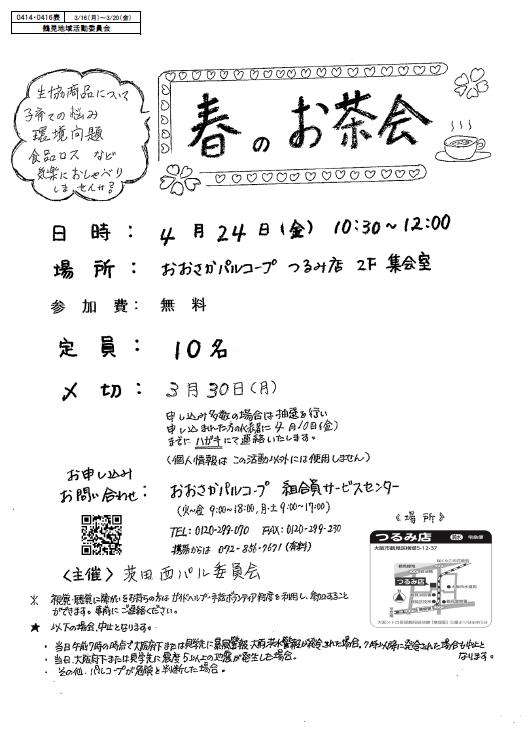 0414・0416表 3/16(月)～3/20(金)
鶴見地域活動委員会
生協商品について
子育ての悩み
環境問題
食品ロス など
気楽におしゃべり
しませんか？
春のお茶会
日時： 4月24日(金) 10:30～12:00
場所： おおさかパルコープ つるみ店 2F 集会室
参加費： 無料
定員： 10名
〆切： 3月30日(月)
申し込み多数の場合は抽選を行い
申し込まれた方の皆様に4月10日(金)
までに ハガキ にて連絡いたします。
(個人情報は この活動以外には使用しません)
お申し込み
お問い合わせ： おおさかパルコープ 組合員サービスセンター
(火～金 9:00～18:00、月・土 9:00～17:00)
TEL：0120-299-070 FAX：0120-299-230
携帯からは 072-856-7671 (有料)
《場所》
つるみ店
大阪市鶴見区横堤5-12-37
つるみ店
〈主催〉 茨田西パル委員会
※ 視覚・聴覚に障がいをお持ちの方は ガイドヘルプ・手話ボランティア制度を利用し、参加すること
ができます。事前にご連絡ください。
★ 以下の場合、中止となります。
・当日午前7時の時点で大阪府下または見学先に暴風警報、大雨・洪水警報が発令された場合。7時以降に発令された場合も中止と
なります。
・当日、大阪府下または見学先に震度5以上の地震が発生した場合。
・その他、パルコープが危険と判断した場合。